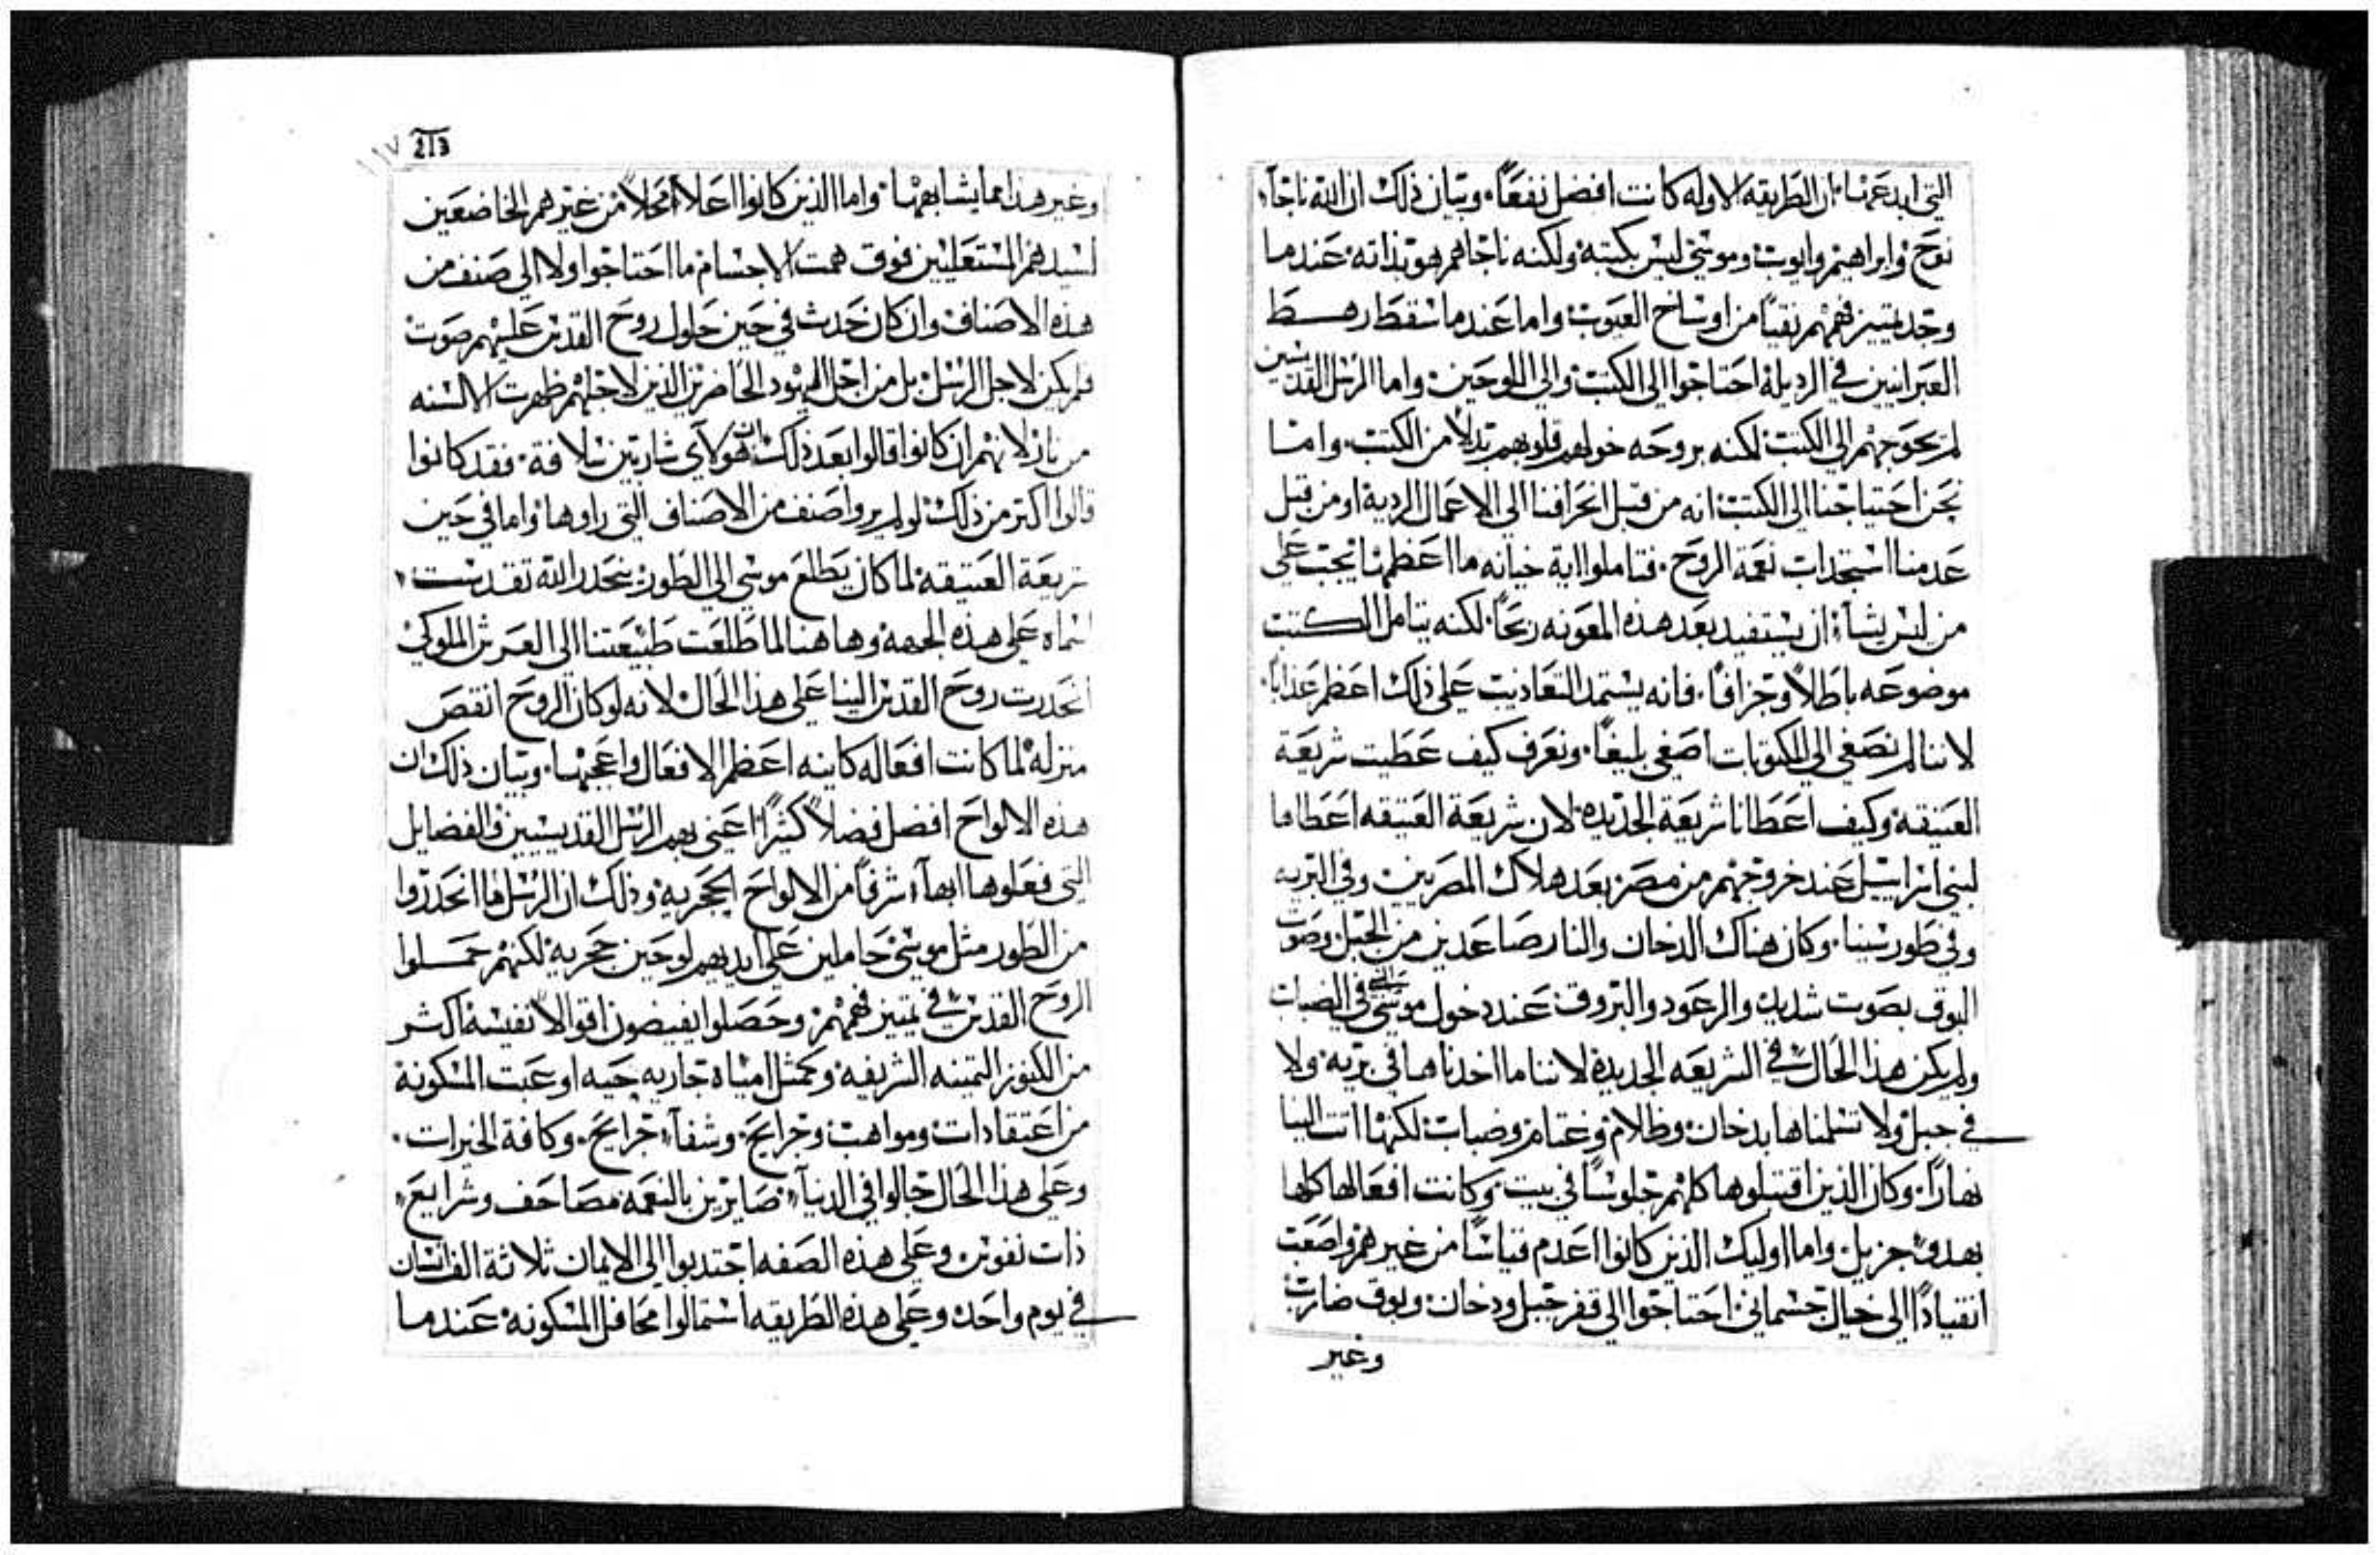 التي ابدعها. ان الطريقه الاوله كانت افضل نفعًا. وبيان ذلك ان الله ناجا
نوح وابراهيم وايوب وموسى ليس بكتبه ولكنه ناجاهم هو بذاته. عندما
وجد تمييز فهمهم نقيًا من اوساخ العيوب واما عندما سقط رهط
العبرانيين في الرديلة احتاجوا الي الكتب والي اللوحين. واما الرسل القديسين
لم يحوجهم الي الكتب لكنه بروحه خولهم قلوبهم بدلاً من الكتب. واما
نحن احتياجنا الي الكتب انه من قبل انحرافنا الي الاعمال الردية او من قبل
عدمنا استجذاب نعمة الروح. فتاملوا اية خيانه ما اعظمها يجب علي
من ليس يشاء ان يستفيد بعد هذه المعونه ربحًا. لكنه يتامل الكتب
موضوعه باطلاً وجزافًا. فانه يستمد التعاذيب علي ذلك اعظم عذابًا.
لاننا لم نصغي الي المكتوبات اصغي بليغًا. ونعرف كيف عطيت شريعة
العتيقة وكيف اعطانا شريعة الجديده. لان شريعة العتيقه اعطاها
لبني اسراييل عند خروجهم من مصر بعد هلاك المصريين وفي البريه
وفي طور سينا. وكان هناك الدخان والنار صاعدين من الجبل وصوت
البوق بصوت شديد والرعود والبروق. عند دخول موسى النبي في الضباب
ولم يكن هذا الحال في الشريعه الجديدة لاننا ما اخدناها في بريه ولا
في جبل ولا تسلمناها بدخان وظلام وغتام وضباب لكنها اتت الينا
نهارًا. وكان الذين اقتبلوها كلهم جلوسًا في بيت وكانت افعالها كلها
بهدو جزيل. واما اوليك الذين كانوا اعدم قياسًا من غيرهم واصعب
انقيادًا الي خيال جسماني احتاجوا الي قفر جبل ودخان وبوق ضارب
وغير
213 ١١٧
وغير هذا مما يشابهها. واما الذين كانوا اعلا محلاً من غيرهم الخاضعين
لسيدهم المستعليين فوق همت الاجسام ما احتاجوا ولا الي صنف من
هذه الاصناف وان كان حدث في حين حلول روح القدس عليهم صوت
فلم يكن لاجل الرسل بل من اجل اليهود الحاضرين الذين لاجلهم ظهرت الالسنه
من نار لانهم ان كانوا قالوا بعد ذلك ان هولاي شاربين سلافة. فقد كانوا
قالوا اكتر من ذلك لو لم يروا صنف من الاصناف التي راوها واما في حين
شريعة العتيقه لما كان يطلع موسي الي الطور ينحدر الله تقدست
اسماه علي هذه الجهه وها هنا لما طلعت طبيعتنا الي العرش الملوكي
انحدرت روح القدس الينا علي هذا الحال لانه لو كان الروح انقص
منزله لما كانت افعاله كاينه اعظم الافعال واعجبها. وبيان ذلك ان
هذه الالواح افضل فضلاً كثيرًا اعني بهم الرسل القديسيين والفضايل
التي فعلوها ابهاء شرفًا من الالواح الحجرية وذلك ان الرسل ما انحدروا
من الطور مثل موسي حاملين علي ايديهم لوحين حجريه لكنهم حملوا
الروح القدس في تمييز فهمهم وحصلوا يفيضون اقوالاً نفيسه اكثر
من الكنوز التمينه الشريفه وكمثل امياه جاريه حيه اوعبت المسكونة
من اعتقادات ومواهب وجرايح وشفاء جرايح. وكافة الخيرات.
وعلي هذا الحال جالوا في الدنياء صايرين بالنعمه مصاحف وشرايع
ذات نفوس وعلي هذه الصفه اجتدبوا الي الايمان ثلاثة الف انسان
في يوم واحد وعلي هذه الطريقه استمالوا محافل المسكونه عندما